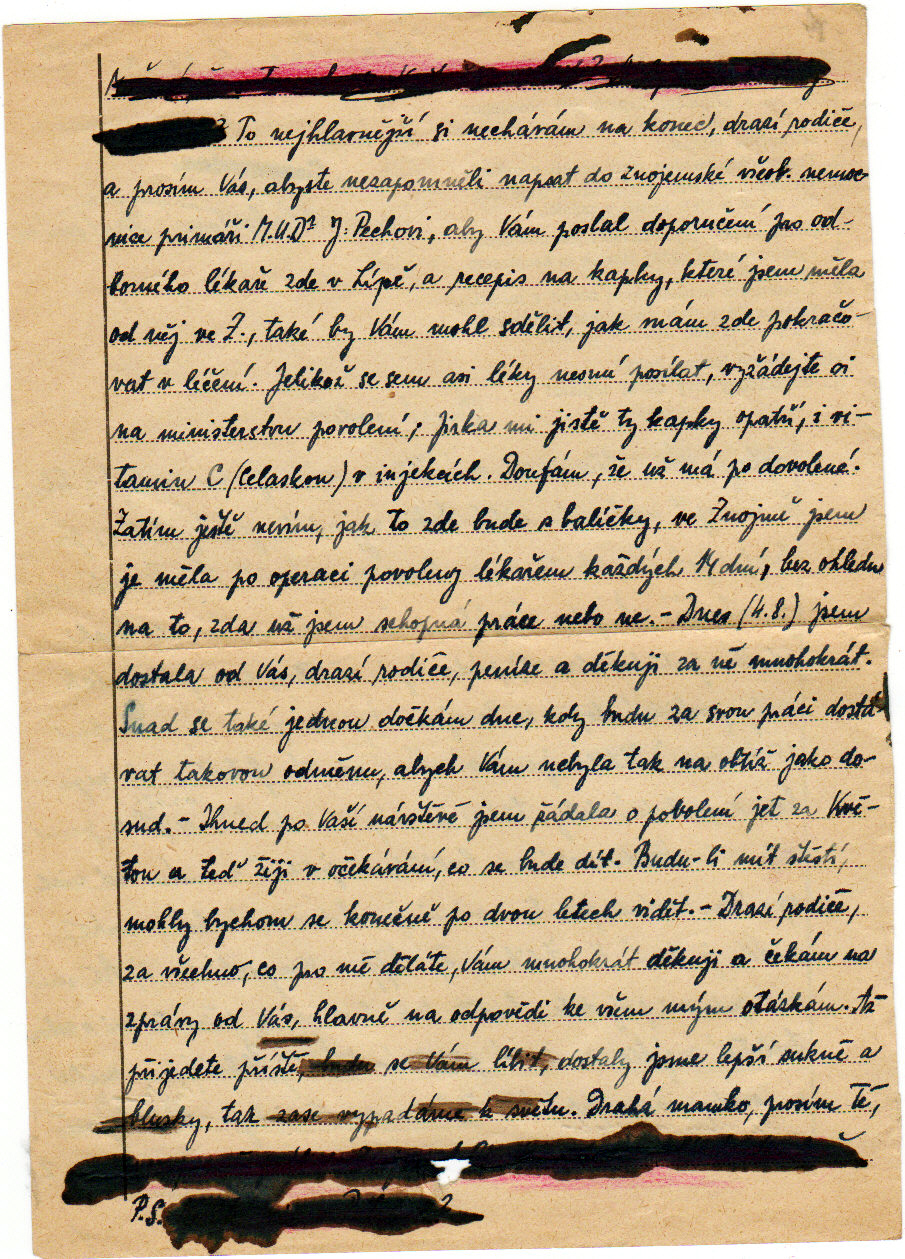 ? To nejhlavnější si nechávám na konec, drazí rodiče,
a prosím Vás, abyste nezapomněli napsat do znojemské všeob. nemoc-
nice primáři M.U.Dr J. Pechovi, aby Vám poslal doporučení pro od-
borného lékaře zde v Lípě, a recepis na kapky, které jsem měla
od něj ve Z., také by Vám mohl sdělit, jak mám zde pokračo-
vat v léčení. Jelikož se sem asi léky nesmí posílat, vyžádejte si
na ministerstvu povolení, Jirka mi jistě ty kapky opatří, i vi-
tamin C (Celaskon) v injekcích. Doufám, že už má po dovolené.
Zatím ještě nevím, jak to zde bude s balíčky, ve Znojmě jsem
je měla po operaci povoleny lékařem každých 14 dní, bez ohledu
na to, zda už jsem schopná práce nebo ne. - Dnes (4.8.) jsem
dostala od Vás, drazí rodiče, peníze a děkuji za ně mnohokrát.
Snad se také jednou dočkám dne, kdy budu za svou práci dostá-
vat takovou odměnu, abych Vám nebyla tak na obtíž jako do-
sud. - Ihned po Vaší návštěvě jsem žádala o povolení jet za Kvě-
tou a teď žiji v očekávání, co se bude dít. Budu-li mít štěstí,
mohly bychom se konečně po dvou letech vidět. - Drazí rodiče,
za všechno, co pro mě děláte, Vám mnohokrát děkuji a čekám na
zprávy od Vás, hlavně na odpovědi ke všem mým otázkám. Až
přijedete příště, budu se Vám líbit, dostaly jsme lepší sukně a
blusky, tak zase vypadáme k světu. Drahá mamko, prosím Tě,
P.S.